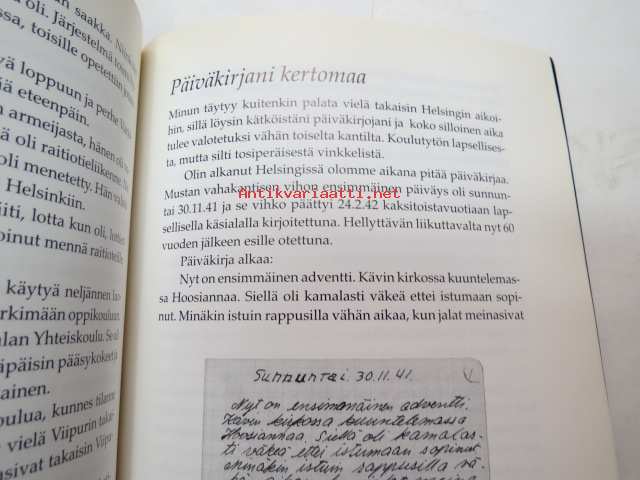 an saakka. Niin
a oli. Järjestelmä toimi
ssa, toisille opetettiin
vä loppuun ja perhe
ä eteenpäin.
armeijasta, hänen oli
oli raitiotieliikenne.
oli menetetty. Hän
Helsinkiin.
äiti, lotta kun oli,
oinut mennä raitioteille
käytyä neljännen
rkimään oppikouluun.
alan Yhteiskoulu. Se
äpäisin pääsykokeet
ainen.
oulua, kunnes tilanne
vielä Viipurin
asivat takaisin
Päiväkirjani kertomaa
Minun täytyy kuitenkin palata vielä takaisin Helsingin aikoi-
hin, sillä löysin kätköistäni päiväkirjojani ja koko silloinen aika
tulee valotetuksi vähän toiselta kantilta. Koulutytön lapsellises-
ta, mutta silti tosiperäisestä vinkkelistä.
Olin alkanut Helsingissä olomme aikana pitää päiväkirjaa.
Mustan vahakantisen vihon ensimmäinen päiväys oli sunnun-
Antikvariaatti.net
tai 30.11.41 ja se vihko päättyi 24.2.42 kaksitoistavuotiaan lap-
sellisella käsialalla kirjoitettuna. Hellyttävän liikuttavalta nyt 60
vuoden jälkeen esille otettuna.
Päiväkirja alkaa:
Nyt on ensimmäinen adventti. Kävin kirkossa kuuntelemas-
sa Hoosiannaa. Siellä oli kamalasti väkeä ettei istumaan sopi-
nut. Minäkin istuin rappusilla vähän aikaa, kun jalat meinasivat
Sunnuntai 30.11.41.
Nyt on ensimmäinen adventti.
Kävin kirkossa kuuntelemassa
Hoosiannaa. Siellä oli kamalas-
ti väkeä ettei istumaan sopinut
minäkin istuin rappusilla vä-